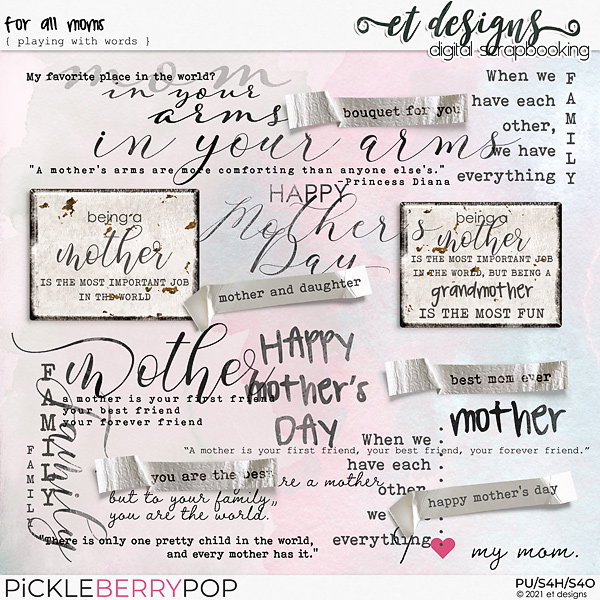 for all moms
{ playing with words }
et designs
digital scrapbooking
mom
My favorite place in the world?
in your
arms
bouquet for you
in your arms
When we
have each
other,
we have
everything
FAMILY
"A mother's arms are more comforting than anyone else's."
-Princess Diana
HAPPY
Mother's
Day
being a
mother
IS THE MOST IMPORTANT JOB
IN THE WORLD
being a
mother
IS THE MOST IMPORTANT JOB
IN THE WORLD, BUT BEING A
grandmother
IS THE MOST FUN
mother and daughter
mother
a mother is your first friend
your best friend
your forever friend
HAPPY
mother's
DAY
best mom ever
mother
FAMILY
family
FAMILY
"A mother is your first friend, your best friend, your forever friend."
When we
have each
other
we
everything.
you are the best
re a mother
but to your family,
you are the world.
happy mother's day
"There is only one pretty child in the world,
and every mother has it."
my mom.
PiCKLEBERRYPOP
PU/S4H/S4O
© 2021 et designs